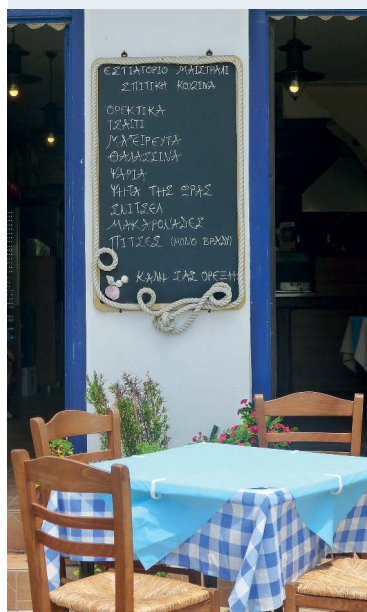 ΕΣΤΙΑΤΟΡΙΟ ΜΑΙΣΤΡΑΛΙ
ΣΠΙΤΙΚΗ ΚΟΥΖΙΝΑ
ΟΡΕΚΤΙΚΑ
ΤΣΑΪΤΙ
ΜΑΓΕΙΡΕΥΤΑ
ΘΑΛΑΣΣΙΝΑ
ΨΑΡΙΑ
ΨΗΤΑ ΤΗΣ ΩΡΑΣ
ΣΝΙΤΣΕΛ
ΜΑΚΑΡΟΝΑΔΕΣ
ΠΙΤΣΕΣ (ΜΟΝΟ ΒΡΑΔΥ)
ΚΑΛΗ ΣΑΣ ΟΡΕΞΗ